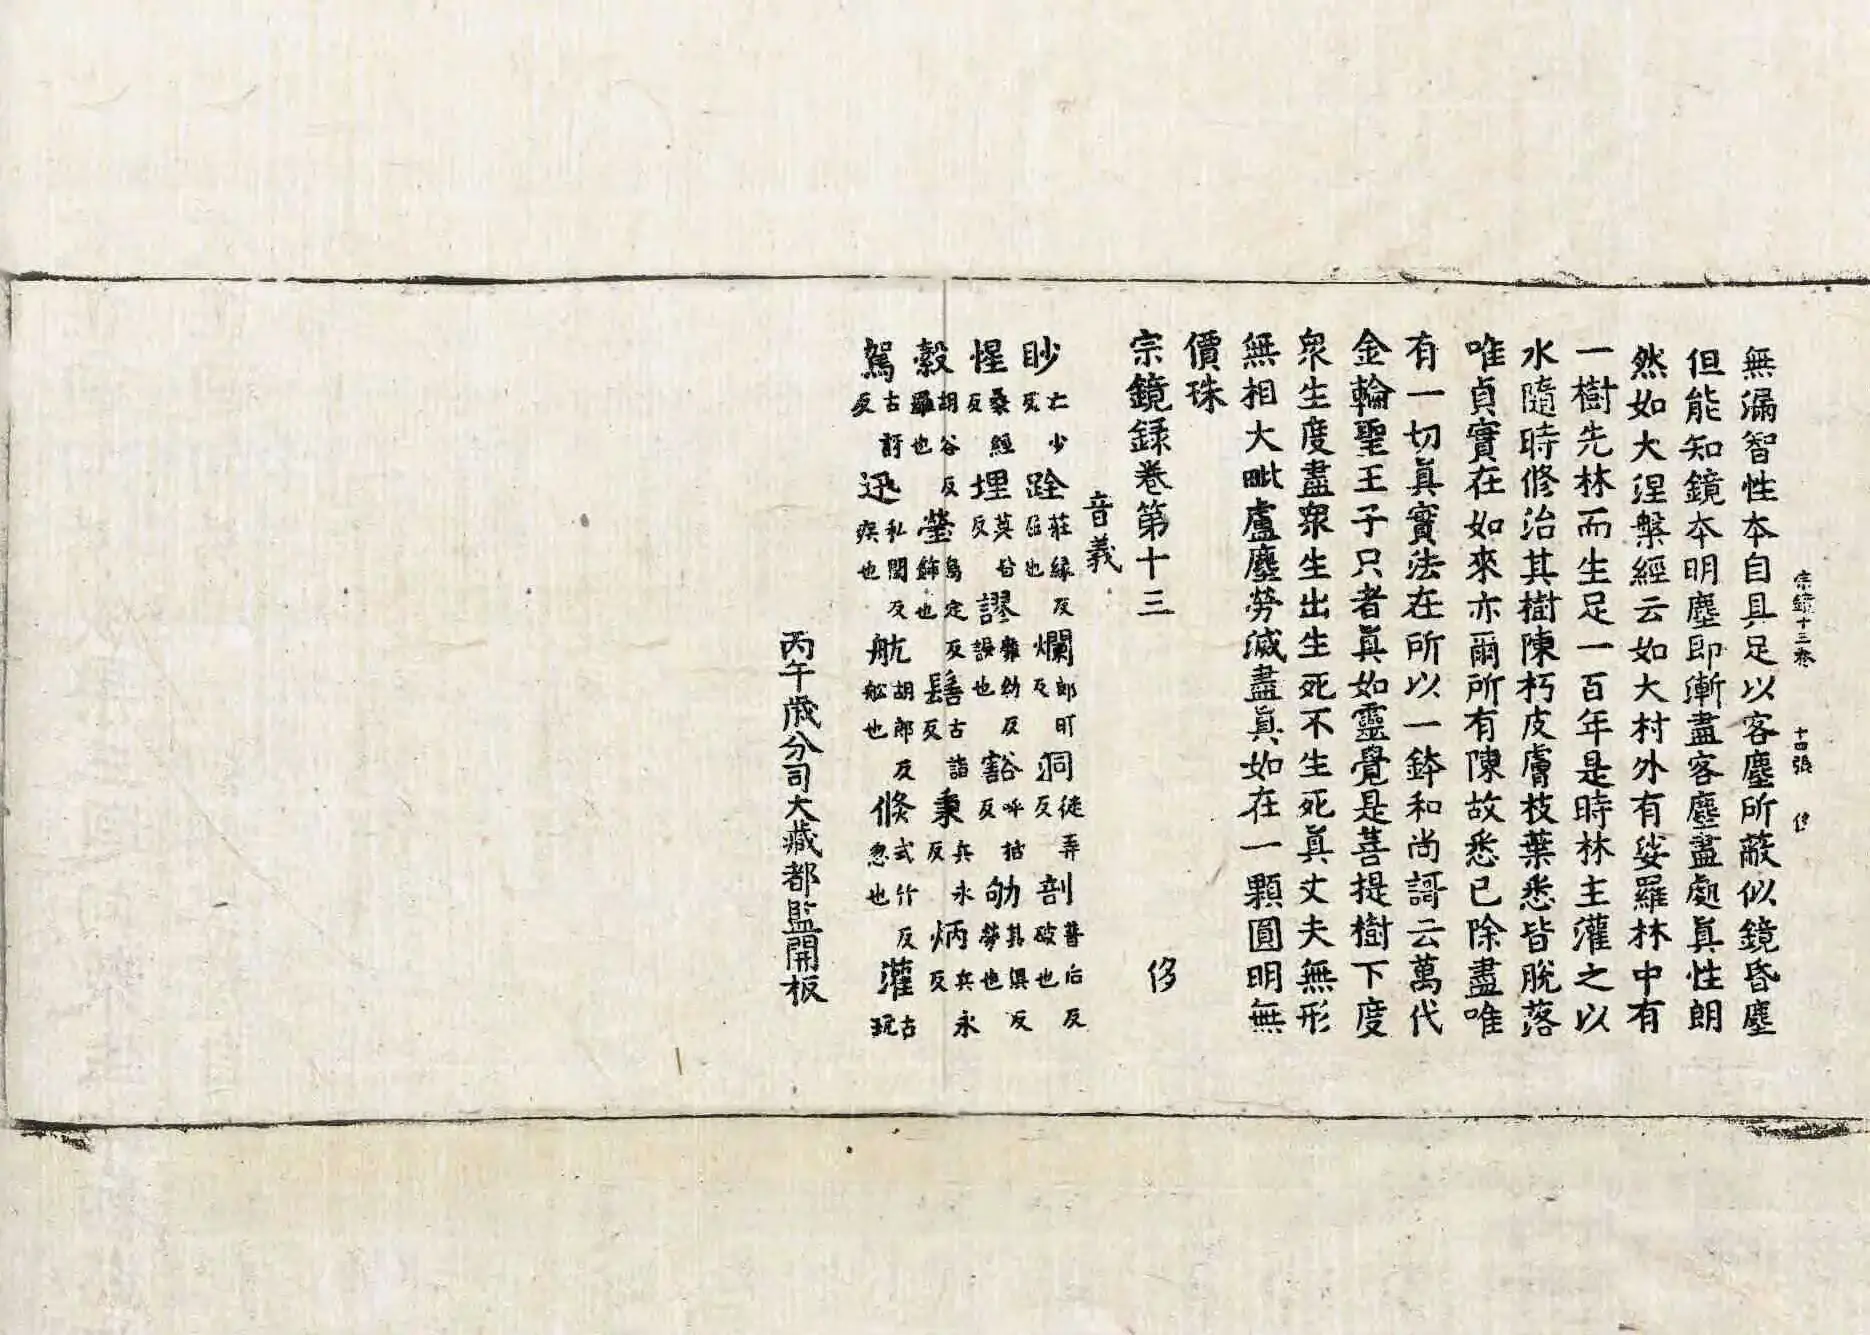 宗鏡十三卷　十四張　侈
無漏智性本自具足以客塵所蔽似鏡昏塵
但能知鏡本明塵即漸盡客塵盡處眞性朗
然如大涅槃經云如大村外有娑羅林中有
一樹先林而生足一百年是時林主灌之以
水隨時修治其樹陳朽皮膚枝葉悉皆脫落
唯貞實在如來亦爾所有陳故悉已除盡唯
有一切眞實法在所以一鉢和尚謌云萬代
金輪聖王子只者眞如靈覺是菩提樹下度
衆生度盡衆生出生死不生死眞丈夫無形
無相大毗盧塵勞滅盡眞如在一顆圓明無
價珠
宗鏡録卷第十三　侈
音義
眇亡少反 跧莊緣反屈也 爛郎旰反 洞徒弄反 剖普后反破也
惺桑經反 埋莫皆反 謬靡幼反誤也 豁呼括反 劬其俱反勞也
縠胡谷反羅也 瑩烏定反飾也 髻古詣反 秉兵永反 炳兵永反
駕古訝反 迅私閏反疾也 航胡郎反舩也 倏式竹反忽也 灌古玩
丙午歲分司大藏都監開板